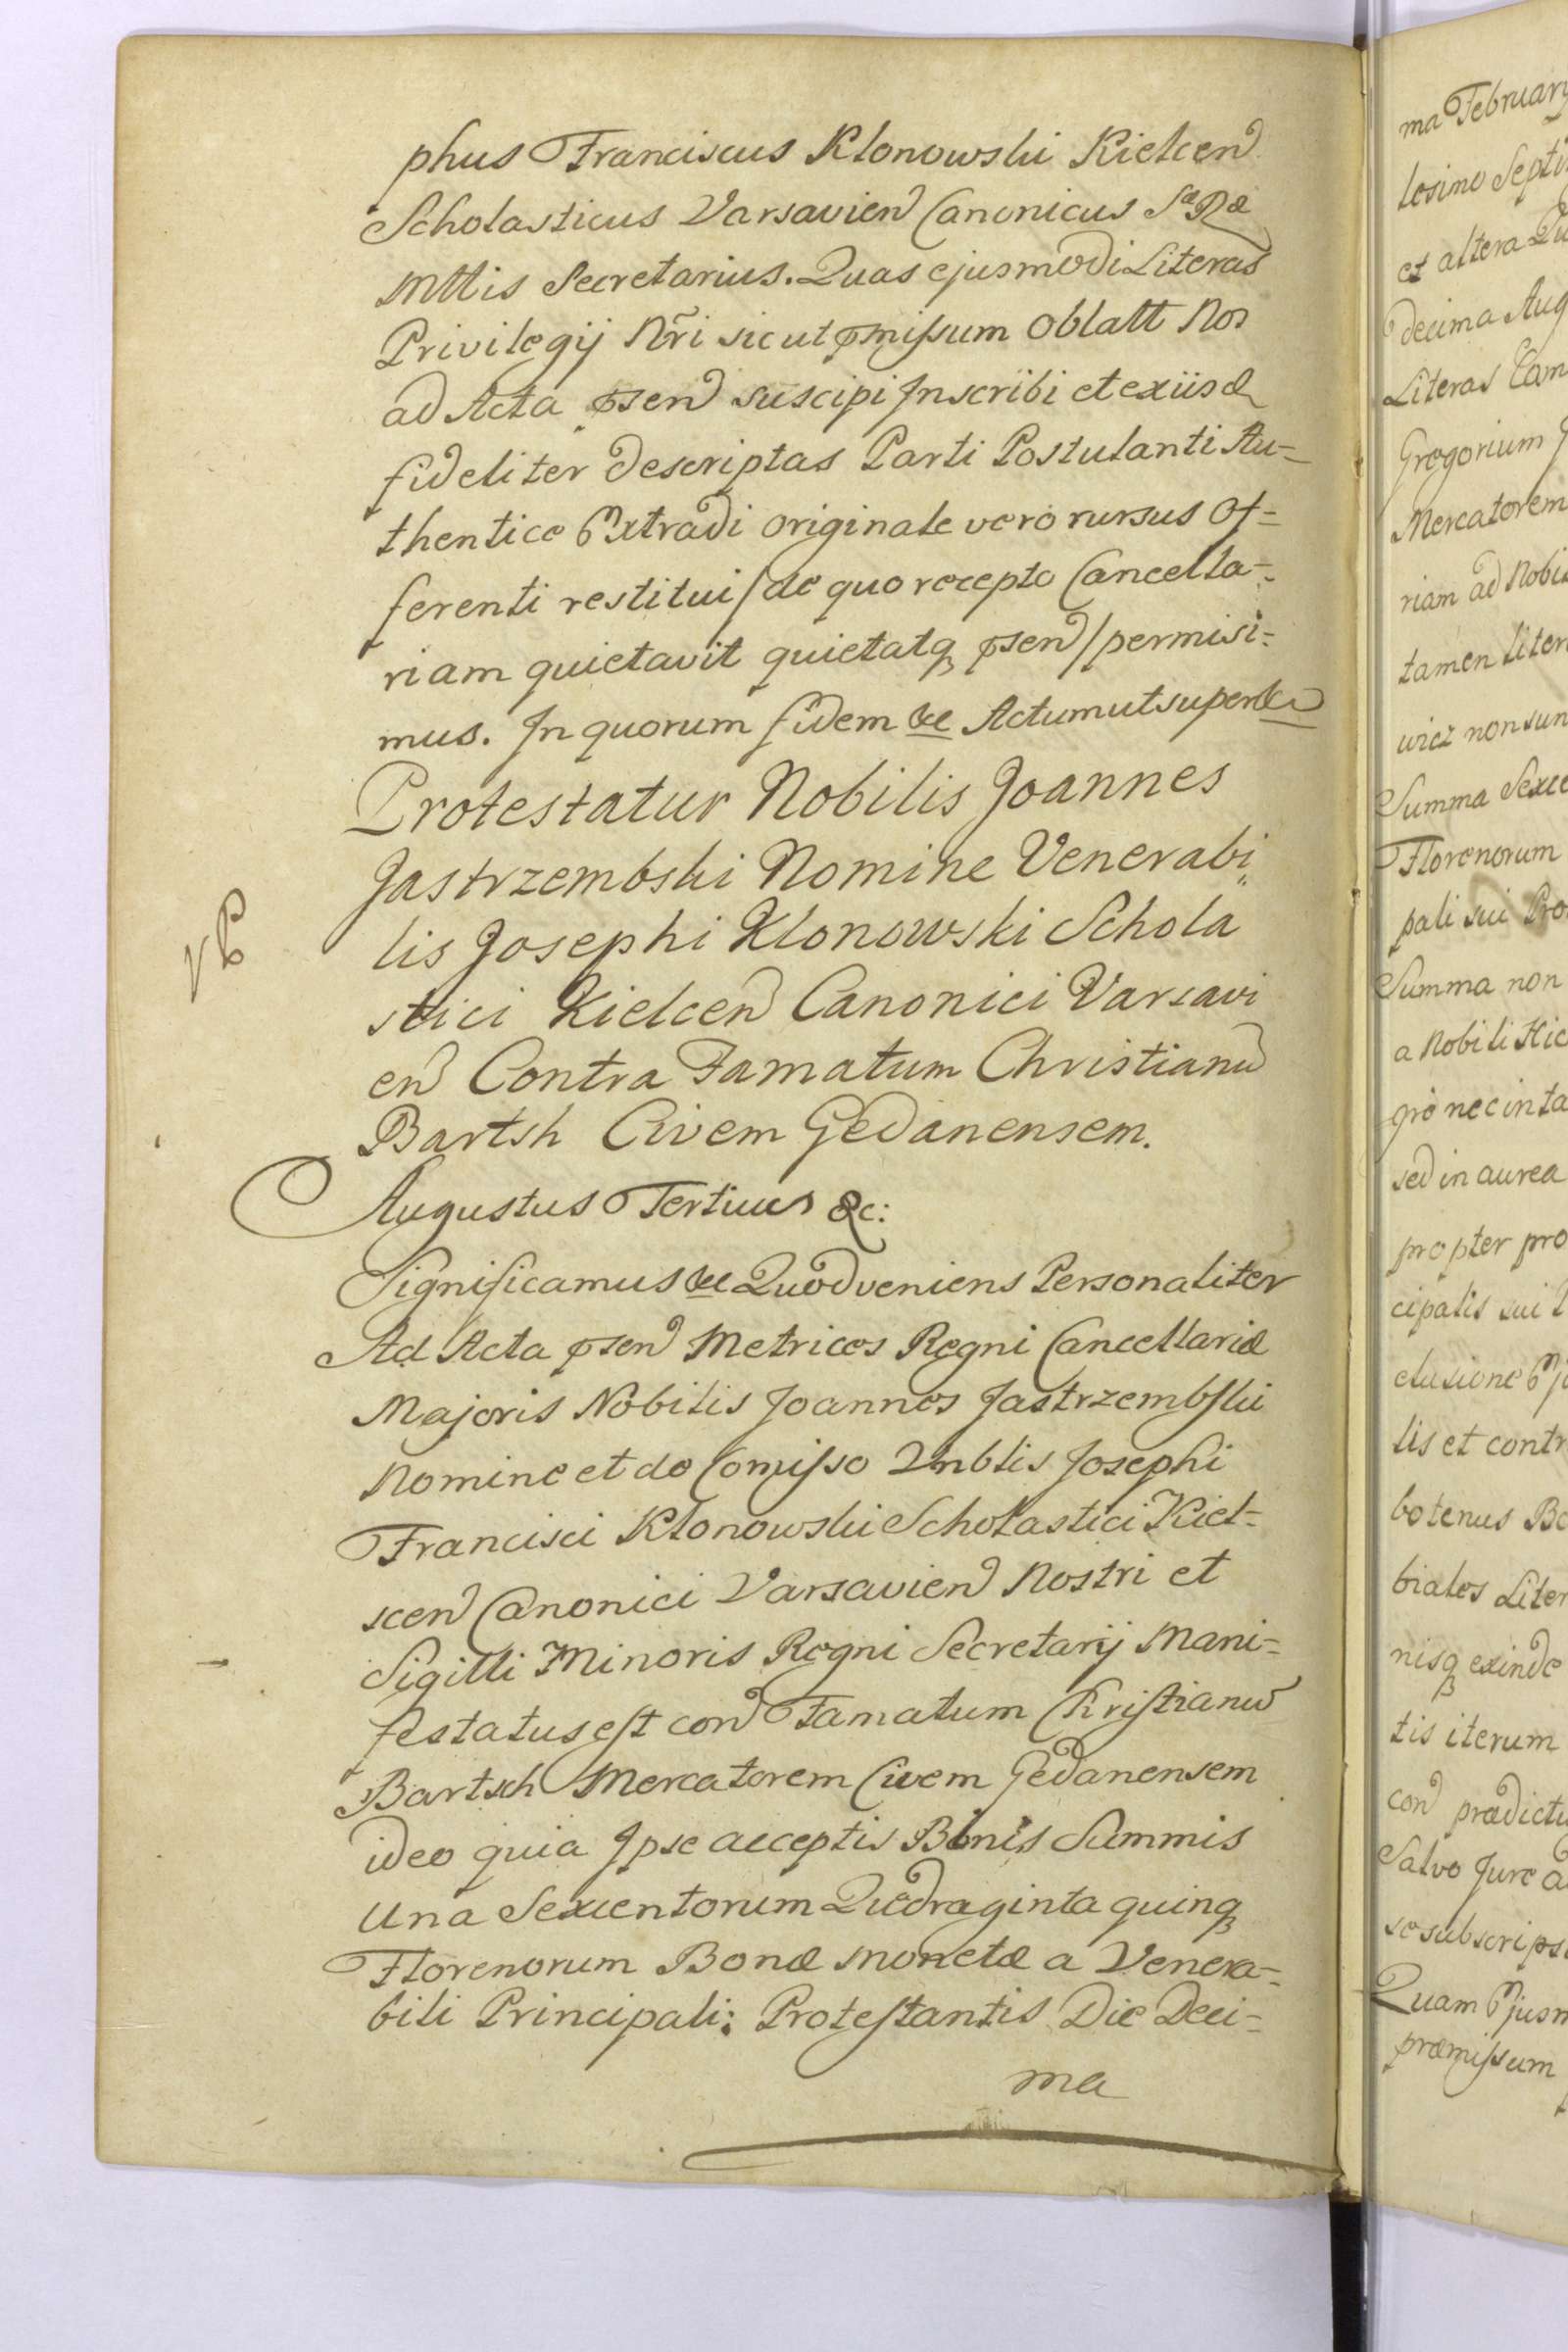 phus Franciscus Klonowski Kielcen
Scholasticus Varsavien Canonicus Sæ Ræ
Mttis Secretarius. Quas ejusmodi Literas
Privilegij Nr̃i sicut pmissum Oblatt Nos
ad Acta psen suscipi Inscribi et ex iisd
fideliter descriptas Parti Postulanti Au-
thentice Extradi originale vero rursus Of-
ferenti restitui / de quo recepto Cancella-
riam quietavit quietatq psen / permisi-
mus. In quorum fidem &c Actum ut supra &c
Protestatur Nobilis Joannes
Jastrzembski Nomine Venerabi
lis Josephi Klonowski Schola
stici Kielcen Canonici Varsavi
en Contra Famatum Christianu
Bartsh Civem Gedanensem.
Augustus Tertius &c:
Significamus &c Quod veniens Personaliter
Ad Acta psen Metrices Regni Cancellariæ
Majoris Nobilis Joannes Jastrzembski
Nomine et de Comisso Vnblis Josephi
Francisci Klonowski Scholastici Kiel-
scen Canonici Varsavien Nostri et
Sigilli Minoris Regni Secretarij Mani-
festatus est con Famatum Christianu
Bartsch Mercatorem Civem Gedanensem
ideo quia Ipse acceptis Binis Summis
Una Sexcentorum Quadraginta quinq
Florenorum Bonæ Monetæ a Venera-
bili Principali: Protestantis Die Deci-
ma
ma Februarij
et altera
decima Aug
Literas Cam
Gregorium
Mercatorem
riam ad Nobi
tamen liter
wicz non sun
Summa Sexce
Florenorum
pali sui Pro
Summa non
a Nobili Hic
gro nec in ta
sed in aurea
propter pro
cipalis sui
clusione
lis et contr
botenus Bo
biales Liter
nisq exinde
tis iterum
con prædictu
Salvo Jure a
se subscrips
Quam Ejusm
præmissum